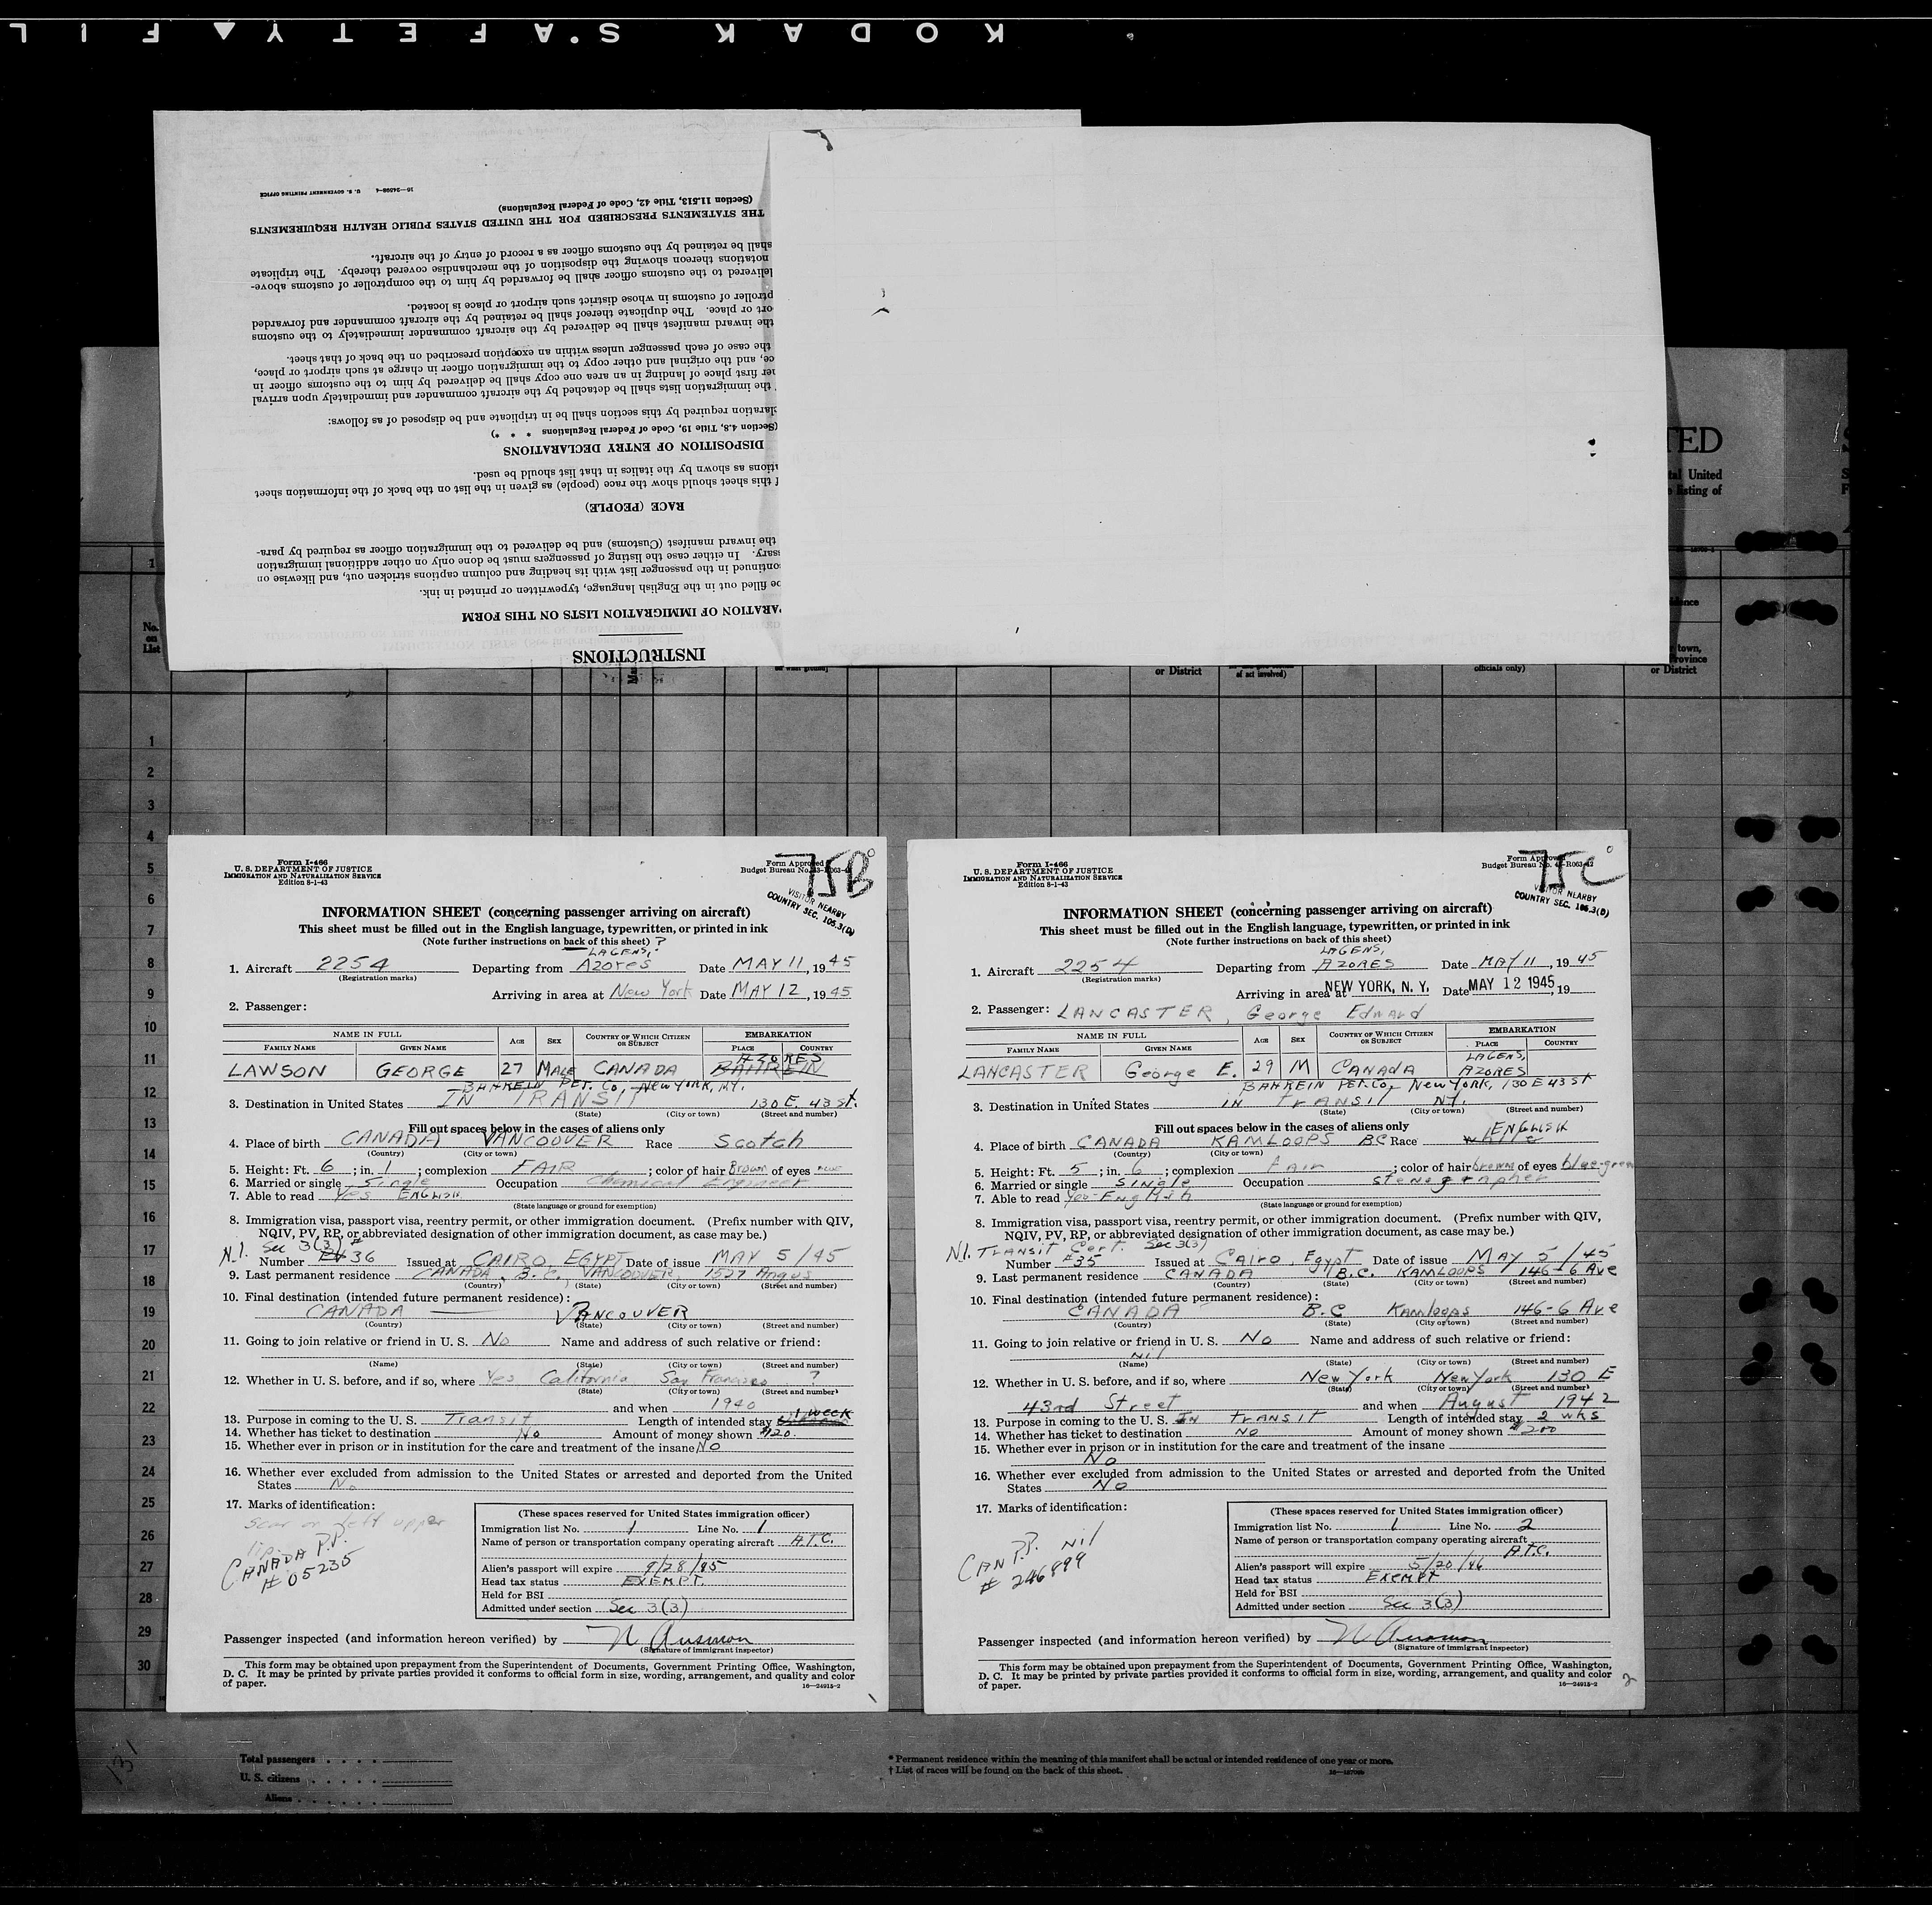 KODAK SAFETY FIL
16—24598-4 U. S. GOVERNMENT PRINTING OFFICE
(Section 11.513, Title 42, Code of Federal Regulations)
THE STATEMENTS PRESCRIBED FOR THE UNITED STATES PUBLIC HEALTH REQUIREMENTS
shall be retained by the customs officer as a record of entry of the aircraft.
notations thereon showing the disposition of the merchandise covered thereby. The triplicate
delivered to the customs officer shall be forwarded by him to the comptroller of customs above-
ptroller of customs in whose district such airport or place is located.
ort or place. The duplicate thereof shall be retained by the aircraft commander and forwarded
the inward manifest shall be delivered by the aircraft commander immediately to the customs
the case of each passenger unless within an exception prescribed on the back of that sheet.
ce, and the original and other copy to the immigration officer in charge at such airport or place,
her first place of landing in an area one copy shall be delivered by him to the customs officer in
the immigration lists shall be detached by the aircraft commander and immediately upon arrival
laration required by this section shall be in triplicate and be disposed of as follows:
(Section 4.8, Title 19, Code of Federal Regulations * * *)
DISPOSITION OF ENTRY DECLARATIONS
ations as shown by the italics in that list should be used.
f this sheet should show the race (people) as given in the list on the back of the information sheet
RACE (PEOPLE)
the inward manifest (Customs) and be delivered to the immigration officer as required by para-
ssary. In either case the listing of passengers must be done only on other additional immigration
continued in the passenger list with its heading and column captions stricken out, and likewise on
be filled out in the English language, typewritten or printed in ink.
PARATION OF IMMIGRATION LISTS ON THIS FORM
INSTRUCTIONS
TED
tal United
listing of
1
No. on List
or District
of act involved)
officials only)
town,
Province
or District
1
2
3
4
5
6
7
8
9
10
11
12
13
14
15
16
17
18
19
20
21
22
23
24
25
26
27
28
29
30
Form I-466
U. S. DEPARTMENT OF JUSTICE
IMMIGRATION AND NATURALIZATION SERVICE
Edition 8-1-43
Form Approved
Budget Bureau No. 43-R063-42
75B
VISITOR NEARBY
COUNTRY SEC. 106.3(D)
INFORMATION SHEET (concerning passenger arriving on aircraft)
This sheet must be filled out in the English language, typewritten, or printed in ink
(Note further instructions on back of this sheet) ?
LAGENS,
1. Aircraft 2254 Departing from Azores Date MAY 11, 1945
(Registration marks)
Arriving in area at New York Date MAY 12, 1945
2. Passenger:
NAME IN FULL AGE SEX COUNTRY OF WHICH CITIZEN OR SUBJECT EMBARKATION
FAMILY NAME GIVEN NAME PLACE COUNTRY
AZORES
LAWSON GEORGE 27 MALE CANADA BAHREIN
BAHREIN PET. Co, New York, N.Y.
3. Destination in United States IN TRANSIT 130 E. 43 St.
(State) (City or town) (Street and number)
Fill out spaces below in the cases of aliens only
4. Place of birth CANADA VANCOUVER Race Scotch
(Country) (City or town)
5. Height: Ft. 6; in. 1; complexion FAIR; color of hair Brown of eyes
6. Married or single Single Occupation Chemical Engineer
7. Able to read Yes ENGLISH
(State language or ground for exemption)
8. Immigration visa, passport visa, reentry permit, or other immigration document. (Prefix number with QIV,
NQIV, PV, RP, or abbreviated designation of other immigration document, as case may be.)
N.I. Sec 3(3) #
Number PV 36 Issued at CAIRO EGYPT Date of issue MAY 5/45
9. Last permanent residence CANADA, B.C., VANCOUVER 1527 Angus
(Country) (State) (City or town) (Street and number)
10. Final destination (intended future permanent residence):
CANADA VANCOUVER
(Country) (State) (City or town) (Street and number)
11. Going to join relative or friend in U. S. No Name and address of such relative or friend:
(Name) (State) (City or town) (Street and number)
12. Whether in U. S. before, and if so, where Yes California San Francisco ?
(State) (City or town) (Street and number)
and when 1940
1 WEEK
13. Purpose in coming to the U. S. Transit Length of intended stay
14. Whether has ticket to destination No Amount of money shown $120.
15. Whether ever in prison or in institution for the care and treatment of the insane No
16. Whether ever excluded from admission to the United States or arrested and deported from the United
States No
17. Marks of identification:
scar on left upper
lip.
CANADA P.P.
# 05235
(These spaces reserved for United States immigration officer)
Immigration list No. 1 Line No. 1
Name of person or transportation company operating aircraft A.T.C.
Alien's passport will expire 9/28/45
Head tax status EXEMPT.
Held for BSI
Admitted under section Sec 3(3)
Passenger inspected (and information hereon verified) by
(Signature of immigrant inspector)
This form may be obtained upon prepayment from the Superintendent of Documents, Government Printing Office, Washington,
D. C. It may be printed by private parties provided it conforms to official form in size, wording, arrangement, and quality and color
of paper.
16—24915-2
Form I-466
U. S. DEPARTMENT OF JUSTICE
IMMIGRATION AND NATURALIZATION SERVICE
Edition 8-1-43
Form Approved
Budget Bureau No. 43-R063-42
75C
VISITOR NEARBY
COUNTRY SEC. 106.3(D)
INFORMATION SHEET (concerning passenger arriving on aircraft)
This sheet must be filled out in the English language, typewritten, or printed in ink
(Note further instructions on back of this sheet)
LAGENS,
1. Aircraft 2254 Departing from AZORES Date MAY 11, 1945
(Registration marks)
Arriving in area at NEW YORK, N. Y. Date MAY 12 1945, 19
2. Passenger: LANCASTER, George Edward
NAME IN FULL AGE SEX COUNTRY OF WHICH CITIZEN OR SUBJECT EMBARKATION
FAMILY NAME GIVEN NAME PLACE COUNTRY
LANCASTER George E. 29 M CANADA LAGENS, AZORES
BAHREIN PET. Co, New York, 130 E 43 St
3. Destination in United States IN TRANSIT N.Y.
(State) (City or town) (Street and number)
Fill out spaces below in the cases of aliens only
ENGLISH
4. Place of birth CANADA KAMLOOPS BC Race white
(Country) (City or town)
5. Height: Ft. 5; in. 6; complexion Fair; color of hair brown of eyes blue-green
6. Married or single Single Occupation stenographer
7. Able to read Yes-English
(State language or ground for exemption)
8. Immigration visa, passport visa, reentry permit, or other immigration document. (Prefix number with QIV,
NQIV, PV, RP, or abbreviated designation of other immigration document, as case may be.)
N.I. TRANSIT Cert. Sec 3(3)
Number #35 Issued at Cairo, Egypt Date of issue MAY 5/45
9. Last permanent residence CANADA B.C. KAMLOOPS 146-6 Ave
(Country) (State) (City or town) (Street and number)
10. Final destination (intended future permanent residence):
CANADA B.C Kamloops 146-6 Ave
(Country) (State) (City or town) (Street and number)
11. Going to join relative or friend in U. S. No Name and address of such relative or friend:
Nil
(Name) (State) (City or town) (Street and number)
12. Whether in U. S. before, and if so, where New York New York 130 E
(State) (City or town) (Street and number)
43rd Street and when August 1942
13. Purpose in coming to the U. S. In transit Length of intended stay 2 wks
14. Whether has ticket to destination No Amount of money shown $200
15. Whether ever in prison or in institution for the care and treatment of the insane
No
16. Whether ever excluded from admission to the United States or arrested and deported from the United
States No
17. Marks of identification:
Nil
CAN P.P.
# 246899
(These spaces reserved for United States immigration officer)
Immigration list No. 1 Line No. 2
Name of person or transportation company operating aircraft
A.T.C.
Alien's passport will expire 5/20/46
Head tax status Exempt
Held for BSI
Admitted under section Sec 3(3)
Passenger inspected (and information hereon verified) by
(Signature of immigrant inspector)
This form may be obtained upon prepayment from the Superintendent of Documents, Government Printing Office, Washington,
D. C. It may be printed by private parties provided it conforms to official form in size, wording, arrangement, and quality and color
of paper.
16—24915-2
2
131
Total passengers
U. S. citizens
Aliens
* Permanent residence within the meaning of this manifest shall be actual or intended residence of one year or more.
† List of races will be found on the back of this sheet.